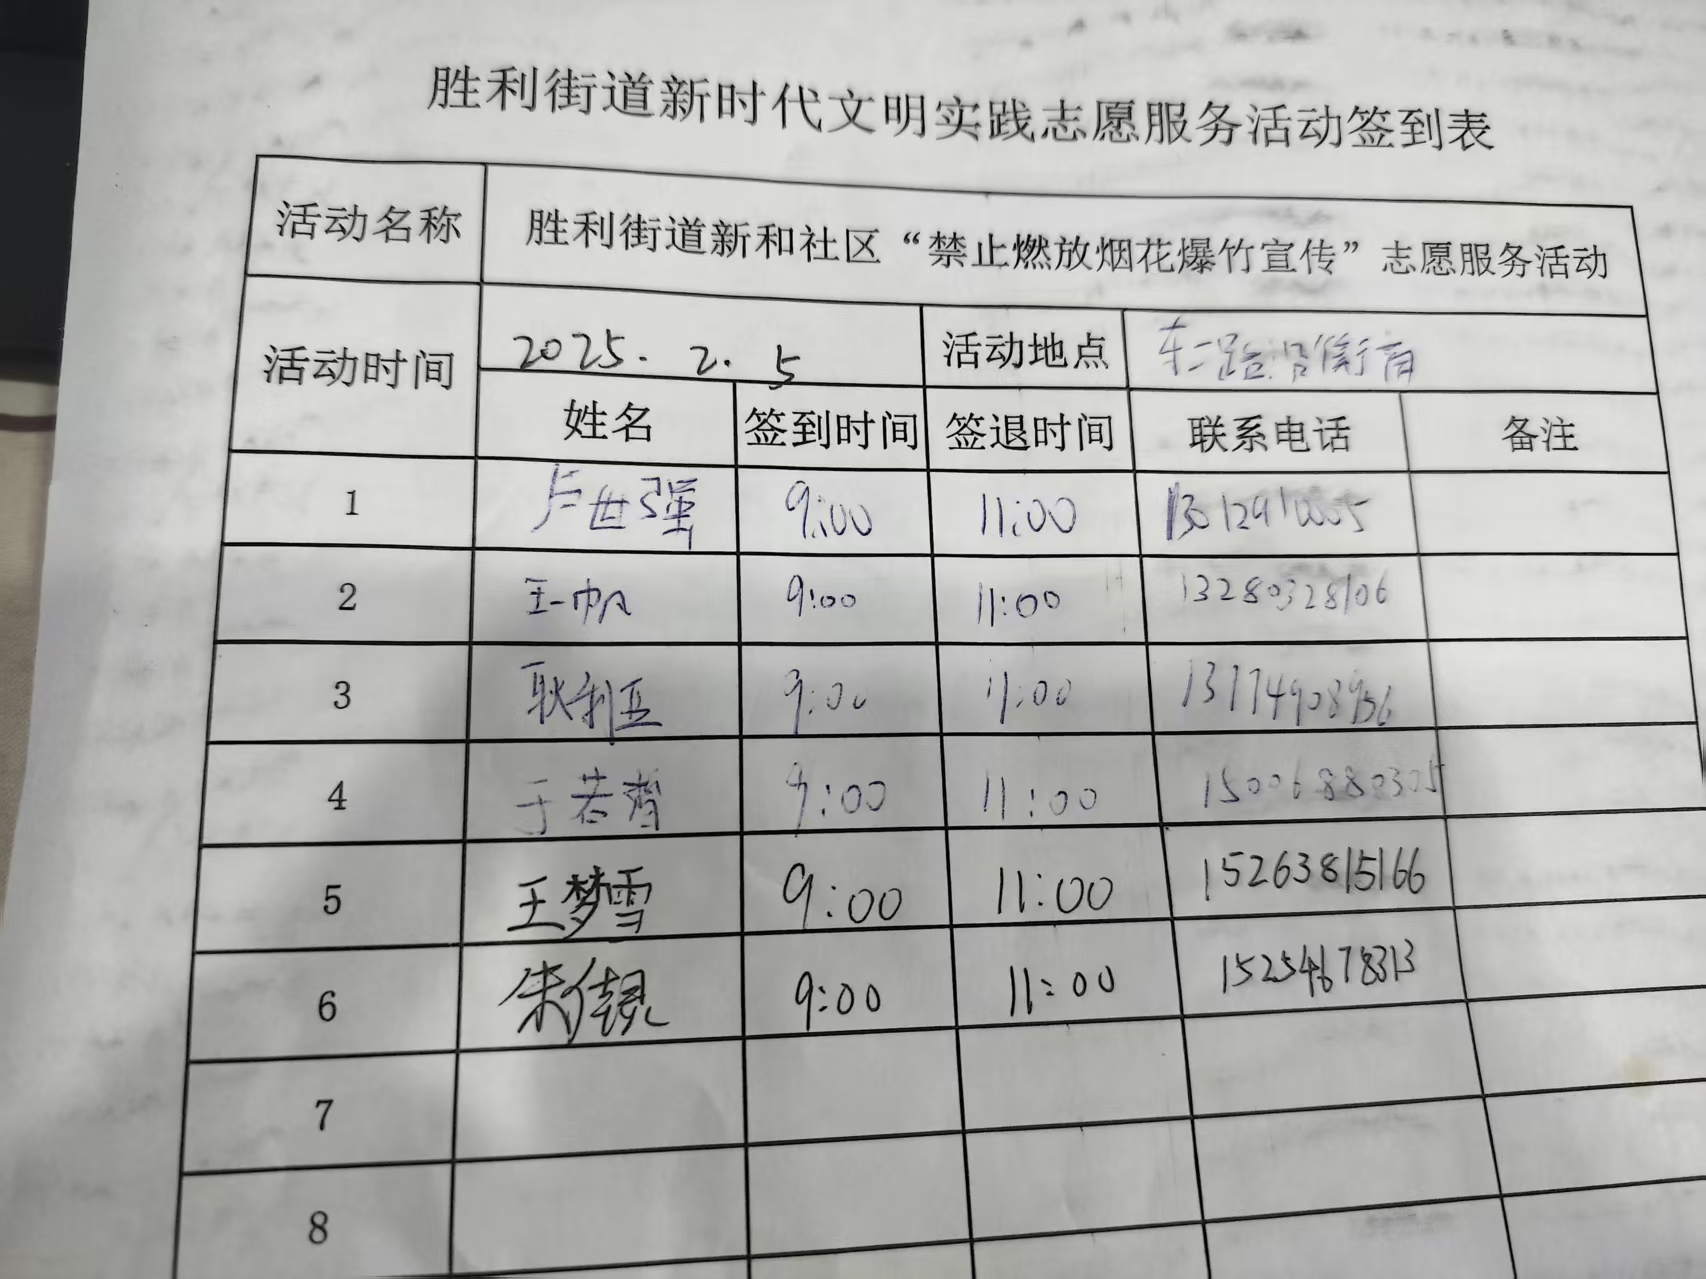 胜利街道新时代文明实践志愿服务活动签到表
活动名称 胜利街道新和社区“禁止燃放烟花爆竹宣传”志愿服务活动
活动时间 2025.2.5 活动地点 东二路沿街商
姓名 签到时间 签退时间 联系电话 备注
1 卢世强 9:00 11:00
2 王一帆 9:00 11:00 13280328106
3 耿利亚 9:00 11:00 13174908956
4 于若 9:00 11:00 15006880305
5 王梦雪 9:00 11:00 15263815166
6 朱 9:00 11:00 15254678313
7
8